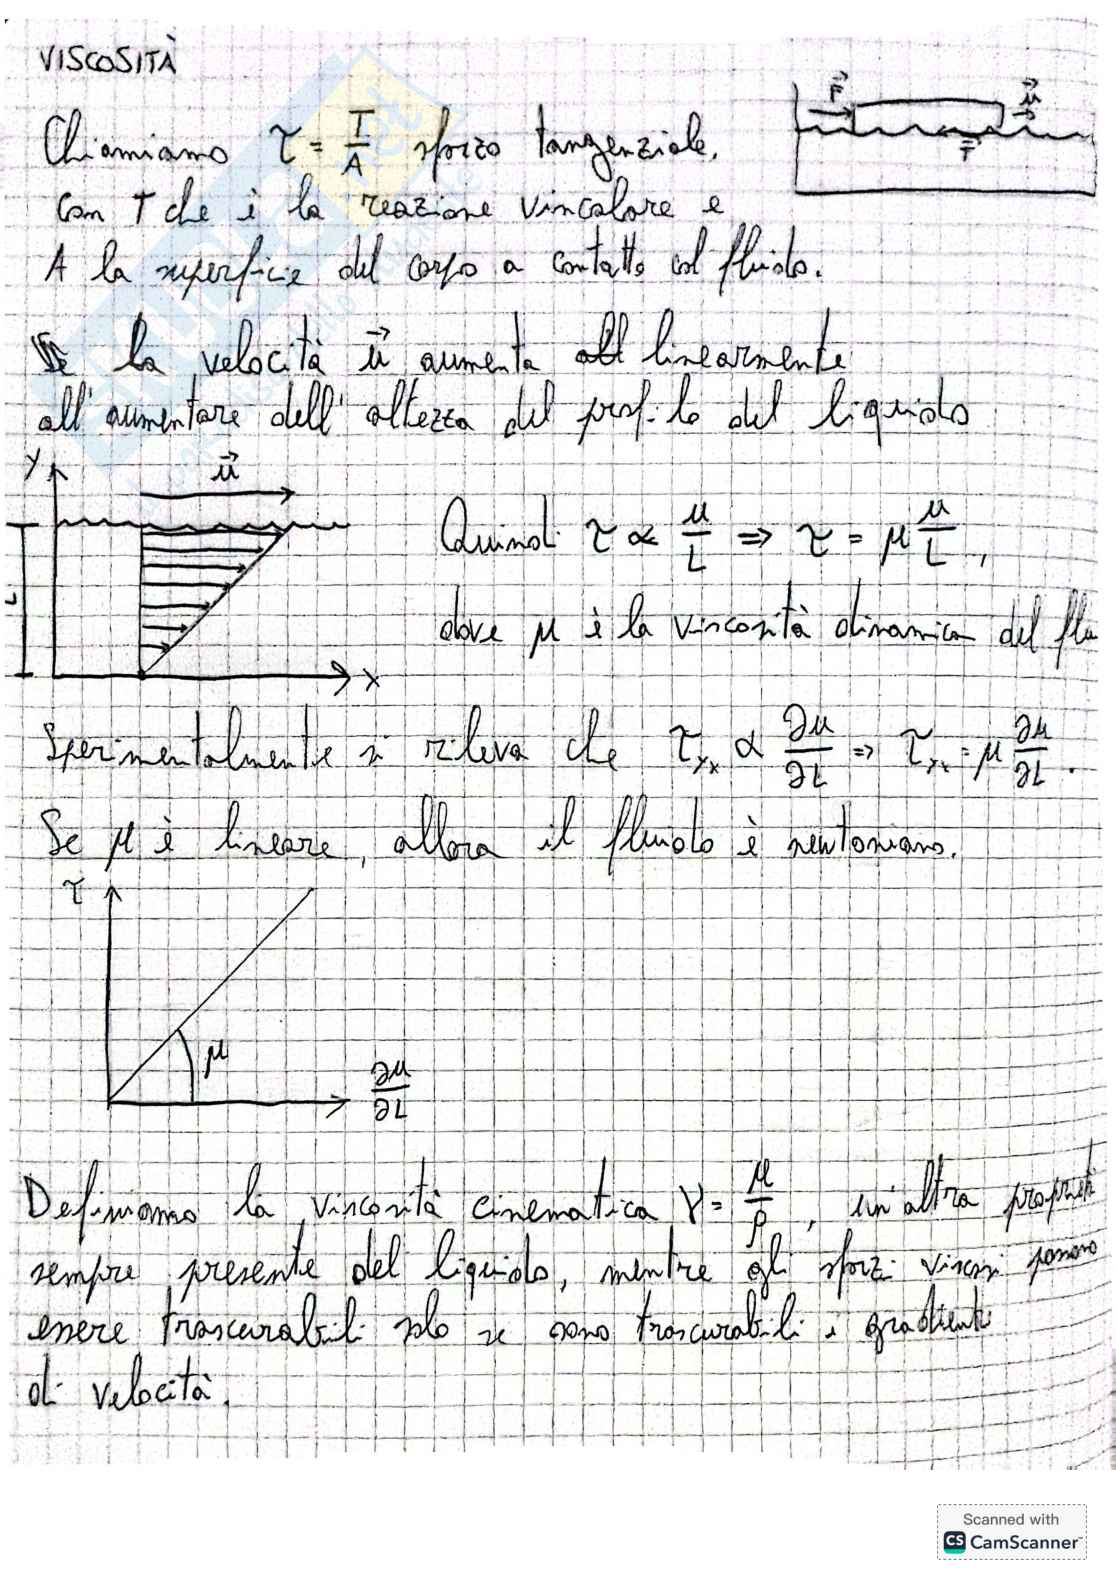 VISCOSITÀ
Chiamiamo τ = T/A sforzo tangenziale,
F⃗
u⃗
T⃗
con T che è la reazione vincolare e
A la superficie del corpo a contatto col fluido.
Se la velocità u⃗ aumenta all linearmente
all'aumentare dell'altezza del profilo del liquido
Y
u⃗
L
X
Quindi τ ∝ u/L ⇒ τ = μ u/L,
dove μ è la viscosità dinamica del flu
Sperimentalmente si rileva che τyx ∝ ∂u/∂L ⇒ τyx = μ ∂u/∂L.
Se μ è lineare, allora il fluido è newtoniano.
τ
μ
∂u/∂L
Definiamo la viscosità cinematica γ = μ/ρ, un'altra propriet
sempre presente del liquido, mentre gli sforzi viscosi possono
essere trascurabili solo se sono trascurabili i gradienti
di velocità.
Scanned with
CS CamScanner